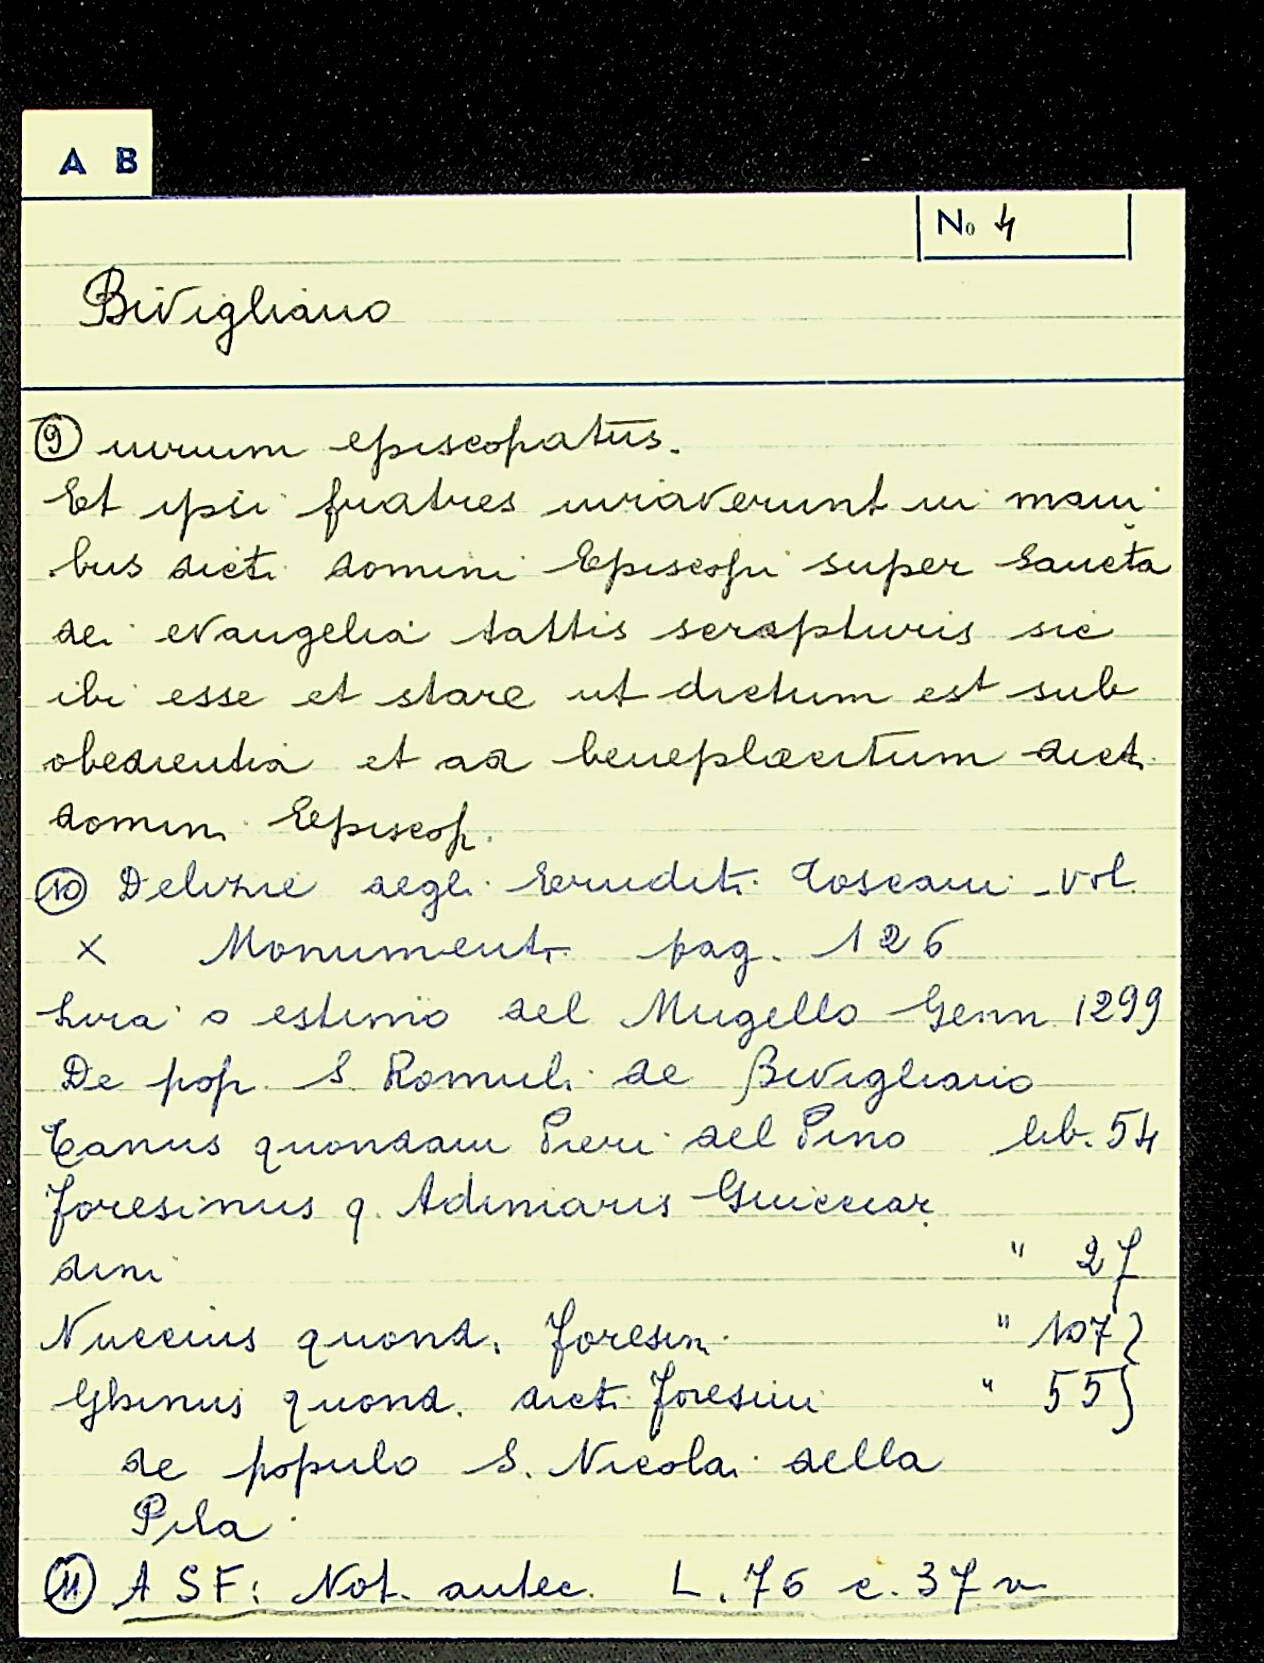 A B
No 4
Bivigliano
⑨ urium episcopatus.
Et ipsi fratres iuraverunt in mani
bus dicti domini Episcopi super Sancta
dei evangelia tattis scripturis sic
ibi esse et stare ut dictum est sub
obedientia et ad beneplacitum dict.
domini Episcop.
⑩ Delizie degli Eruditi Toscani - vol.
X Monumenti pag. 126
Lira o estimo del Mugello Genn. 1299
De pop. S. Romuli de Bivigliano
Tanus quondam Pieri del Pino lib. 54
Foresinus q. Adimaris Guicciar
dini " 27
Nuccius quond. Foresin. " 107}
Ghinus quond. dicti Foresini " 55}
de populo S. Nicolai della
Pila
⑪ A S F: Not. antec. L. 76 c. 37 v.